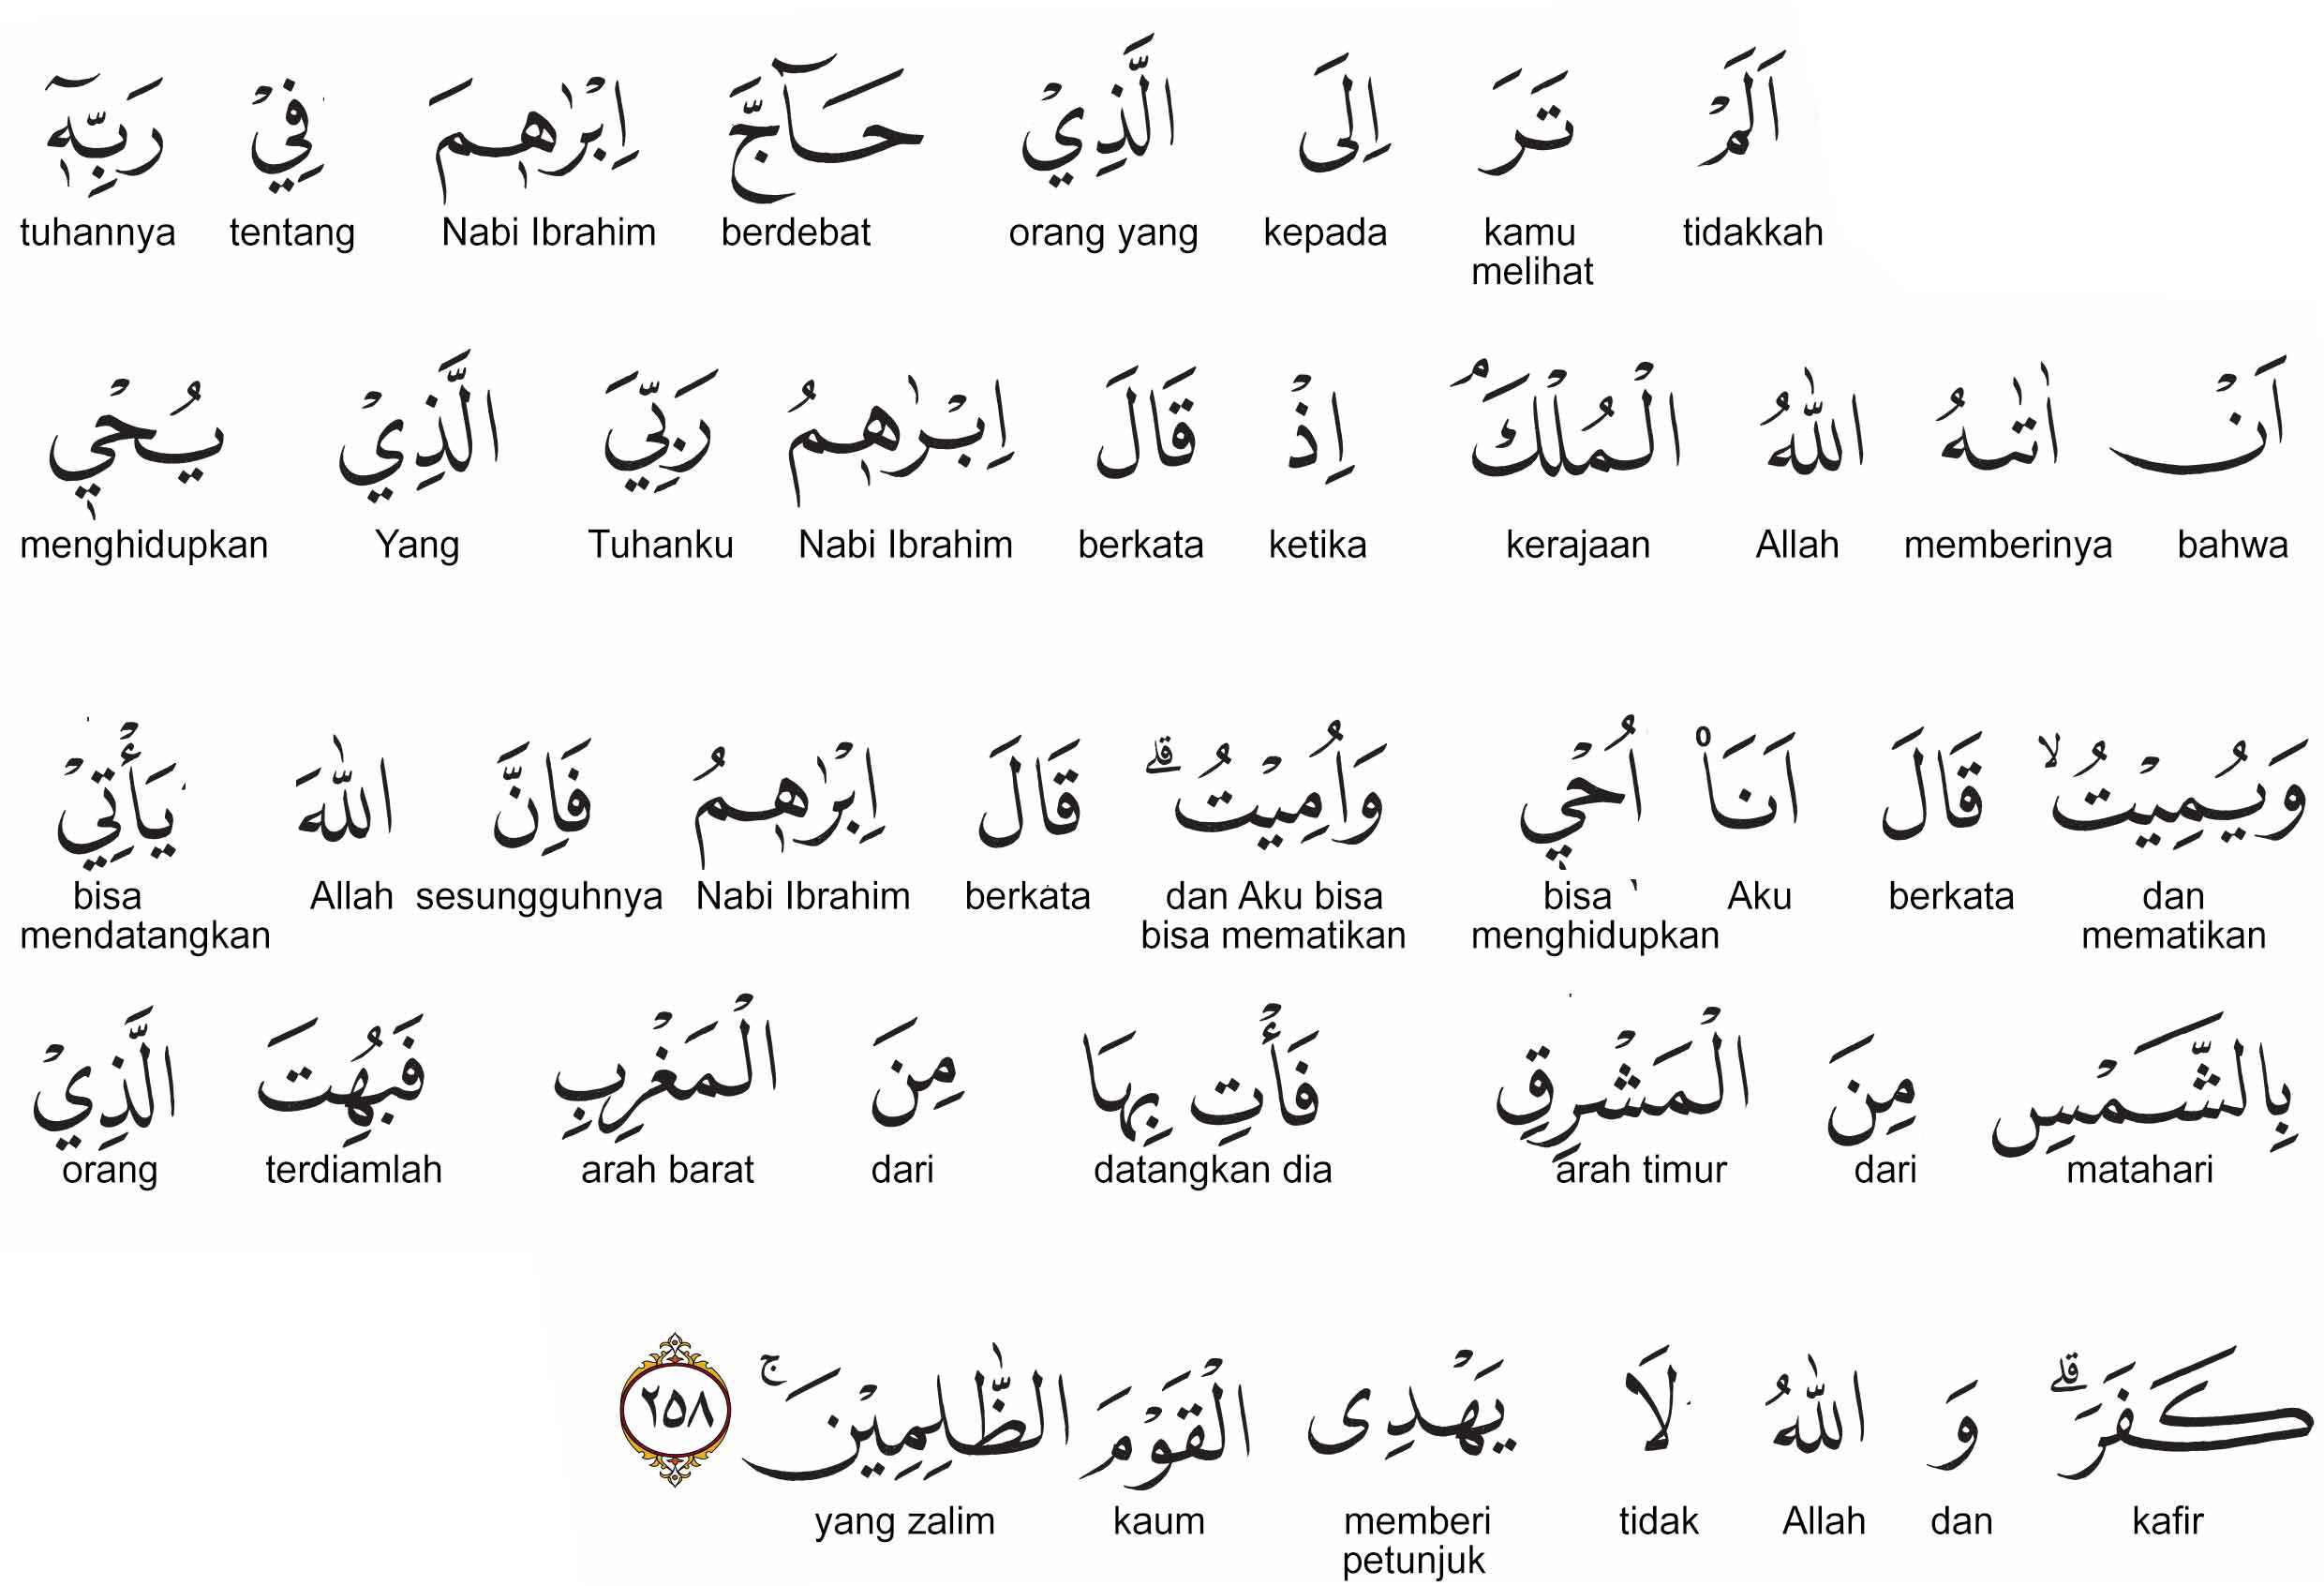 اَلَمْ تَرَ اِلَى الَّذِيْ حَآجَّ اِبْرٰهٖمَ فِيْ رَبِّهٖٓ
tuhannya tentang Nabi Ibrahim berdebat orang yang kepada kamu melihat tidakkah
اَنْ اٰتٰىهُ اللّٰهُ الْمُلْكَۘ اِذْ قَالَ اِبْرٰهٖمُ رَبِّيَ الَّذِيْ يُحْيٖ
menghidupkan Yang Tuhanku Nabi Ibrahim berkata ketika kerajaan Allah memberinya bahwa
وَيُمِيْتُۙ قَالَ اَنَا۠ اُحْيٖ وَاُمِيْتُۗ قَالَ اِبْرٰهٖمُ فَاِنَّ اللّٰهَ يَأْتِيْ
bisa mendatangkan Allah sesungguhnya Nabi Ibrahim berkata dan Aku bisa bisa mematikan bisa menghidupkan Aku berkata dan mematikan
بِالشَّمْسِ مِنَ الْمَشْرِقِ فَأْتِ بِهَا مِنَ الْمَغْرِبِ فَبُهِتَ الَّذِيْ
orang terdiamlah arah barat dari datangkan dia arah timur dari matahari
كَفَرَۗ وَ اللّٰهُ لَا يَهْدِى الْقَوْمَ الظّٰلِمِيْنَۚ ٢٥٨
yang zalim kaum memberi petunjuk tidak Allah dan kafir